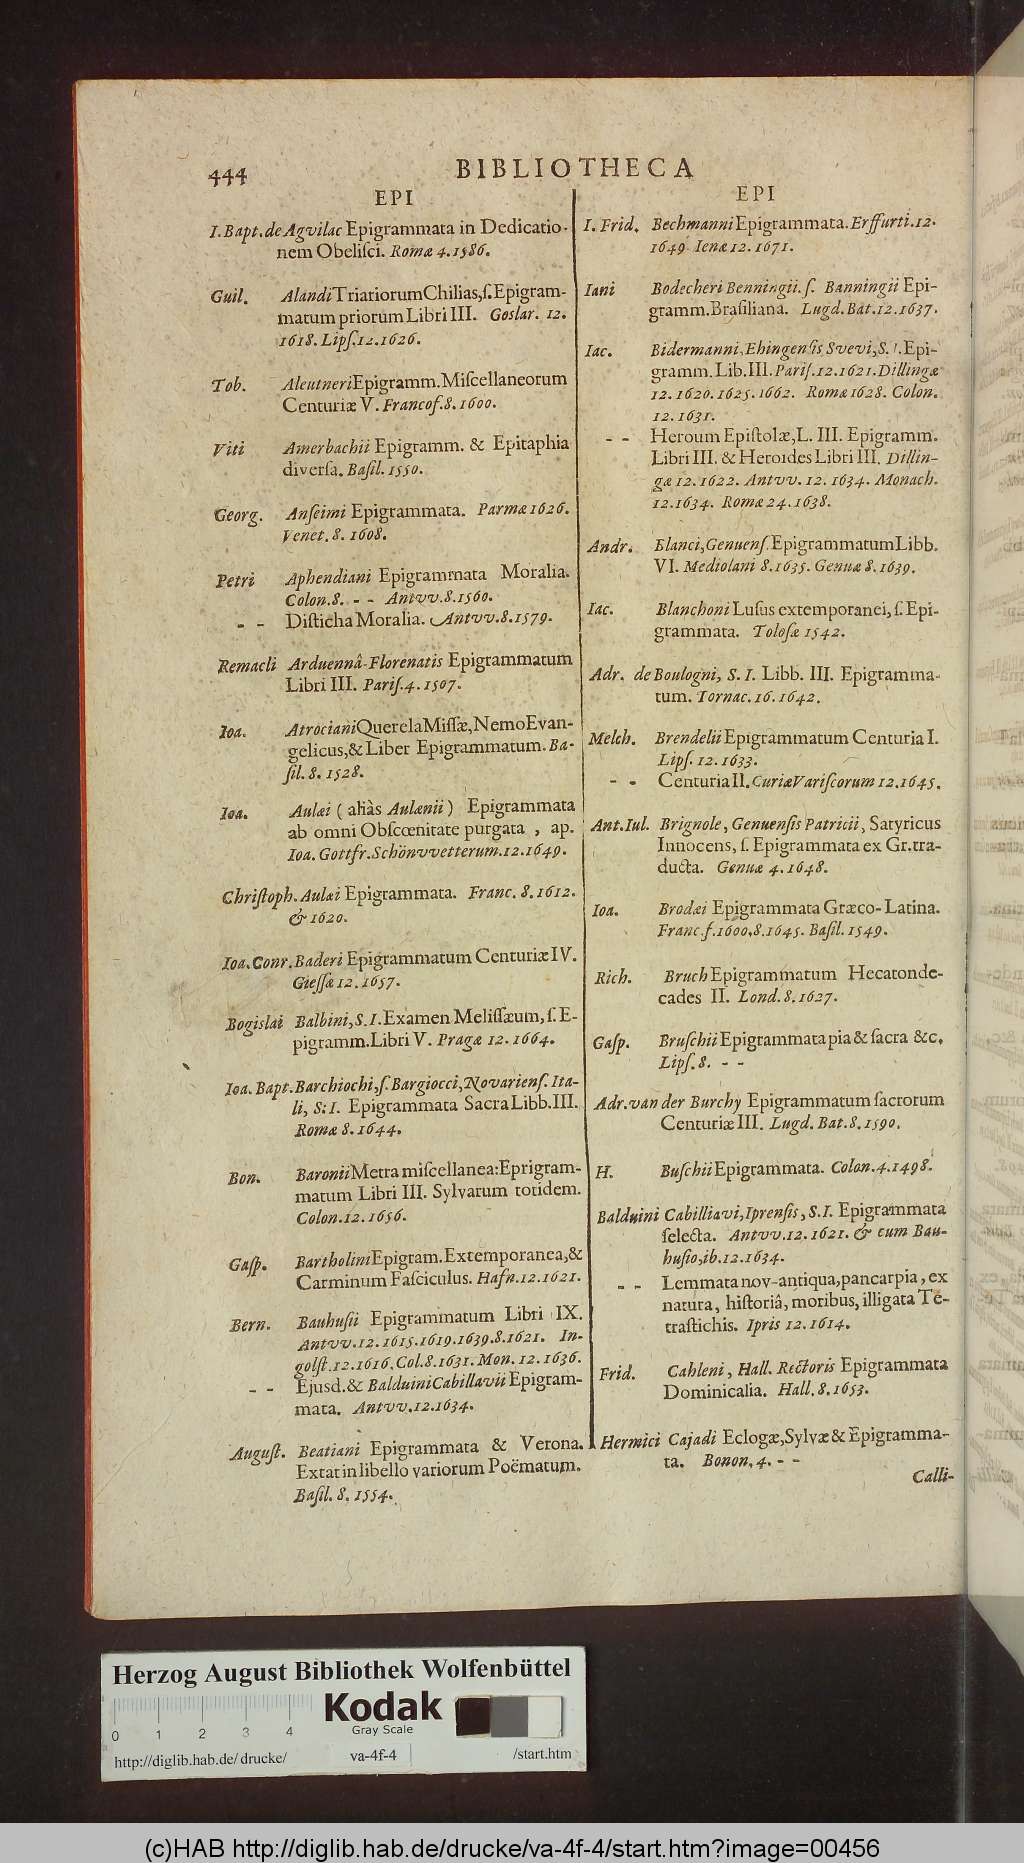 444
BIBLIOTHECA
EPI
I. Bapt. de Agvilac Epigrammata in Dedicatio-
nem Obelisci. Romæ 4. 1586.
Guil. Alandi Triariorum Chilias, ſ. Epigram-
matum priorum Libri III. Goslar. 12.
1618. Lipſ. 12. 1626.
Tob. Aleutneri Epigramm. Miſcellaneorum
Centuriæ V. Francof. 8. 1600.
Viti Amerbachii Epigramm. & Epitaphia
diverſa. Baſil. 1550.
Georg. Anſeimi Epigrammata. Parmæ 1626.
Venet. 8. 1608.
Petri Aphendiani Epigrammata Moralia.
Colon. 8. - - Antvv. 8. 1560.
- - Diſticha Moralia. Antvv. 8. 1579.
Remacli Arduennâ-Florenatis Epigrammatum
Libri III. Pariſ. 4. 1507.
Ioa. Atrociani Querela Miſſæ, Nemo Evan-
gelicus, & Liber Epigrammatum. Ba-
ſil. 8. 1528.
Ioa. Aulæi ( aliàs Aulænii ) Epigrammata
ab omni Obſcœnitate purgata , ap.
Ioa. Gottfr. Schönvvetterum. 12. 1649.
Chriſtoph. Aulæi Epigrammata. Franc. 8. 1612.
& 1620.
Ioa. Conr. Baderi Epigrammatum Centuriæ IV.
Gieſſæ 12. 1657.
Bogislai Balbini, S. I. Examen Meliſſæum, ſ. E-
pigramm. Libri V. Pragæ 12. 1664.
Ioa. Bapt. Barchiochi, ſ. Bargiocci, Novarienſ. Ita-
li, S. I. Epigrammata Sacra Libb. III.
Romæ 8. 1644.
Bon. Baronii Metra miſcellanea: Eprigram-
matum Libri III. Sylvarum totidem.
Colon. 12. 1656.
Gaſp. Bartholini Epigram. Extemporanea, &
Carminum Faſciculus. Hafn. 12. 1621.
Bern. Bauhuſii Epigrammatum Libri IX.
Antvv. 12. 1615. 1619. 1639. 8. 1621. In-
golſt. 12. 1616. Col. 8. 1631. Mon. 12. 1636.
- - Ejusd. & Balduini Cabillavii Epigram-
mata. Antvv. 12. 1634.
Auguſt. Beatiani Epigrammata & Verona.
Extat in libello variorum Poëmatum.
Baſil. 8. 1554.
EPI
I. Frid. Bechmanni Epigrammata. Erffurti. 12.
1649 Ienæ 12. 1671.
Iani Bodecheri Benningii. ſ. Banningii Epi-
gramm. Braſiliana. Lugd. Bat. 12. 1637.
Iac. Bidermanni, Ehingenſis Svevi, S. I. Epi-
gramm. Lib. III. Pariſ. 12. 1621. Dillingæ
12. 1620. 1625. 1662. Romæ 1628. Colon.
12. 1631.
- - Heroum Epiſtolæ, L. III. Epigramm.
Libri III. & Heroides Libri III. Dillin-
gæ 12. 1622. Antvv. 12. 1634. Monach.
12. 1634. Romæ 24. 1638.
Andr. Blanci, Genuenſ. Epigrammatum Libb.
VI. Mediolani 8. 1635. Genuæ 8. 1639.
Iac. Blanchoni Luſus extemporanei, ſ. Epi-
grammata. Toloſæ 1542.
Adr. de Boulogni, S. I. Libb. III. Epigramma-
tum. Tornac. 16. 1642.
Melch. Brendelii Epigrammatum Centuria I.
Lipſ. 12. 1633.
- - Centuria II. Curiæ Variſcorum 12. 1645.
Ant. Iul. Brignole, Genuenſis Patricii, Satyricus
Innocens, ſ. Epigrammata ex Gr. tra-
ducta. Genuæ 4. 1648.
Ioa. Brodæi Epigrammata Græco-Latina.
Franc. f. 1600. 8. 1645. Baſil. 1549.
Rich. Bruch Epigrammatum Hecatonde-
cades II. Lond. 8. 1627.
Gaſp. Bruſchii Epigrammata pia & ſacra &c.
Lipſ. 8. - -
Adr. van der Burchy Epigrammatum ſacrorum
Centuriæ III. Lugd. Bat. 8. 1590.
H. Buſchii Epigrammata. Colon. 4. 1498.
Balduini Cabilliavi, Iprenſis, S. I. Epigrammata
ſelecta. Antvv. 12. 1621. & cum Bau-
huſio, ib. 12. 1634.
- - Lemmata nov-antiqua, pancarpia, ex
natura, hiſtoriâ, moribus, illigata Te-
traſtichis. Ipris 12. 1614.
Frid. Cahleni, Hall. Rectoris Epigrammata
Dominicalia. Hall. 8. 1653.
Hermici Cajadi Eclogæ, Sylvæ & Epigramma-
ta. Bonon. 4. - -
Calli-
Herzog August Bibliothek Wolfenbüttel
Kodak
Gray Scale
0 1 2 3 4
http://diglib.hab.de/ drucke/ va-4f-4 /start.htm
(c)HAB http://diglib.hab.de/drucke/va-4f-4/start.htm?image=00456